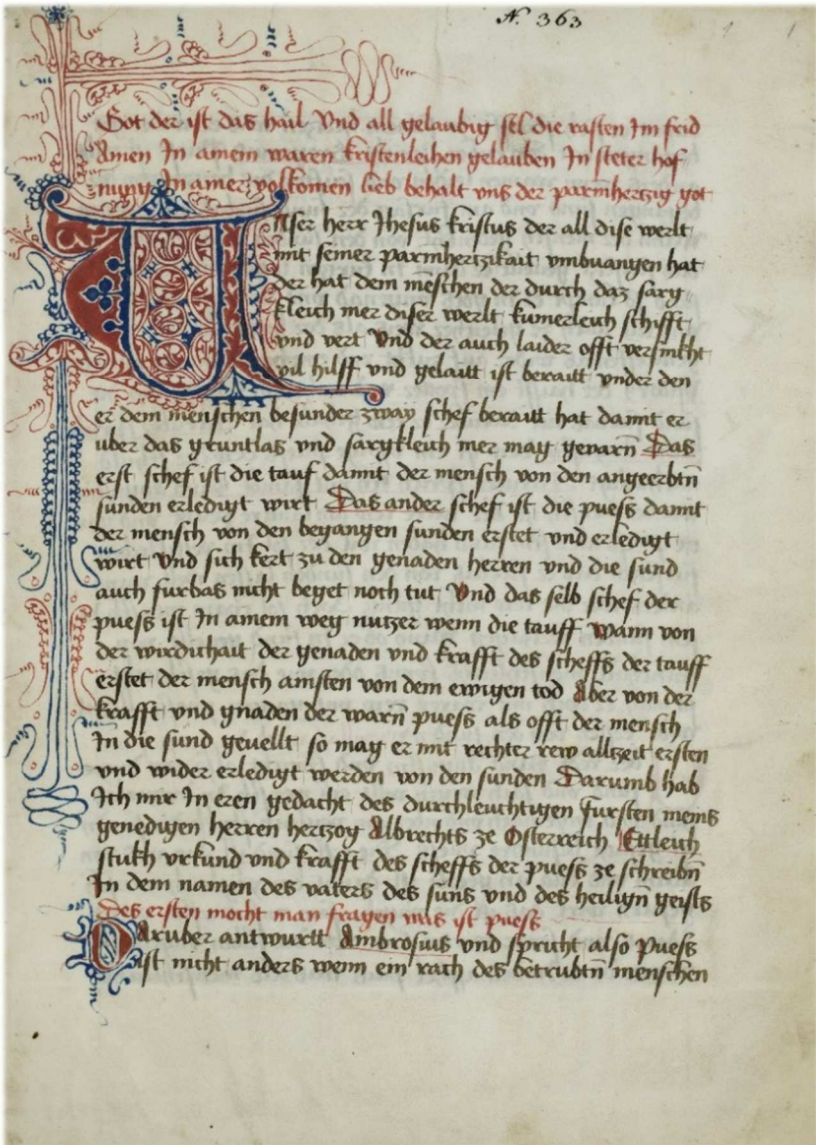 N. 363
1 1
Got der ist das hail Vnd all gelaubig sel die rasten Im frid
Amen In ainem waren kristenleihen gelauben In steter hof
nung In ainer volkomen lieb behalt vns der parmhertzig got
Unser herr Jhesus kristus der all dise werlt
mit seiner parmhertzikait vmbuangen hat
der hat dem menschen der durch daz sarg
kleich mer diser werlt kumerleich schifft
vnd vert Vnd der auch laider offt versinkht
vil hilff vnd gelaitt ist beraitt vnder den
er dem menschen besunder zway schef beraitt hat damit er
uber das gruntlas vnd sargkleich mer mag geuarn̄ Das
erst schef ist die tauf damit der mensch von den angeerbtn̄
sunden erledigt wirt Das ander schef ist die puess damit
der mensch von den begangen sunden erstet vnd erledigt
wirt Vnd sich kert zu den genaden herren vnd die sund
auch furbas nicht beget noch tut Vnd das selb schef der
puess ist In ainem weg nutzer wenn die tauff Wann von
der wirdichait der genaden vnd krafft des scheffs der tauff
erstet der mensch ainsten von dem ewigen tod Aber von der
krafft vnd gnaden der warn̄ puess als offt der mensch
In die sund geuellt so mag er mit rechter rew allzeit ersten
vnd wider erledigt werden von den sunden Darumb hab
Ich mir In eren gedacht des durchleuchtigen fursten meins
genedigen herren hertzog Albrechts ze Osterreich Ettleich
stukh vrkund vnd krafft des scheffs der puess ze schreibn̄
In dem namen des vaters des suns vnd des heilign̄ geists
Des ersten mocht man fragen was ist puess
Daruber antwurtt Ambrosius vnd spricht also Puess
ist nicht anders wenn ein rach des betrubtn̄ menschen